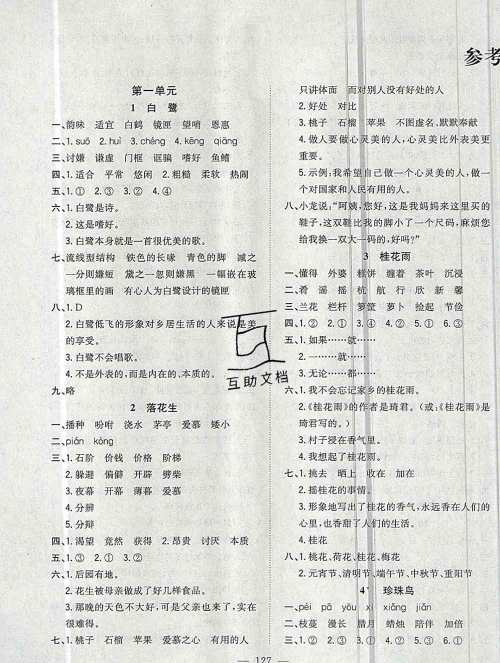 参考
第一单元
1 白鹭
一、韵味 适宜 白鹤 镜匣 望哨 恩惠
二、1. suō 2. huì 3. chéng 4. kēng qiāng
三、讨嫌 谦虚 门框 诓骗 嗜好 鱼鳍
四、1. 适合 平常 悠闲 2. 粗糙 柔软 热闹
五、1. ① 2. ③ 3. ② 4. ④
六、1. 白鹭是诗。
2. 这是嗜好。
3. 白鹭本身就是一首很优美的歌。
七、流线型结构 铁色的长喙 青色的脚 减之
一分则嫌短 黛之一忽则嫌黑 一幅嵌在玻
璃框里的画 有心人为白鹭设计的镜匣
八、1. D
2. 白鹭低飞的形象对乡居生活的人来说是美
的享受。
3. 白鹭不会唱歌。
4. 不是外表的,而是内在的、本质的。
九、略
2 落花生
一、播种 吩咐 浇水 茅亭 爱慕 矮小
二、pián kòng
三、1. 石阶 价钱 价格 阶梯
2. 躲避 偏僻 开辟 劈柴
3. 夜幕 开幕 薄暮 爱慕
4. 分辨
5. 分辩
四、1. 渴望 竟然 获得 2. 昂贵 讨厌 本质
五、1. ③ 2. ① 3. ②
六、1. 后园有地。
2. 花生被母亲做成了好几样食品。
3. 那晚的天色不大好,可是父亲也来了,实在
很难得。
七、1. 桃子 石榴 苹果 爱慕之心 有用的人
只讲体面 而对别人没有好处的人
2. 好处 对比
3. 桃子 石榴 苹果 不图虚名、默默奉献
4. 做人要做心灵美的人,心灵美比外表美更
重要。
5. 示例:我希望自己做一个心灵美的人,做一
个对国家和人民有用的人。
八、小龙说:“阿姨,您好,这是我妈妈来这里买的
鞋子,这双鞋比我的脚小了一个尺码,麻烦您
给我换一双大一码的,好吗?”
3 桂花雨
一、懂得 外婆 糕饼 缠着 茶叶 沉浸
二、肴 遥 摇 航 航 行 欣 新 馨
三、兰花 栏杆 箩筐 萝卜 捡起 节俭
四、1. ② 2. ① 3. ④ 4. ② 5. ① 6. ③
五、1. 如果……就……
2. 一……就……
3. 无论……都……
六、1. 我不会忘记家乡的桂花雨。
2.《桂花雨》的作者是琦君。(或:《桂花雨》是
琦君写的。)
3. 村子浸在香气里。
4. 我想起了桂花雨。
七、1. 挑去 晒上 收在 加在
2. 摇桂花的事情。
3. 形象地写出了桂花的香气,永远香在人们的
心里,也香甜了人们的生活。
4. 桂花
八、1. 桃花、荷花、桂花、梅花
2. 元宵节、清明节、端午节、中秋节、重阳节
4* 珍珠鸟
一、pēi pā yòu xì xiāng jiǎn
二、枝蔓 漫长 腊月 蜡烛 陪伴 加倍
三、1. ① 2. ③ 3. ④ 4. ② 5. ⑤ 6. ⑥
127
互助文档